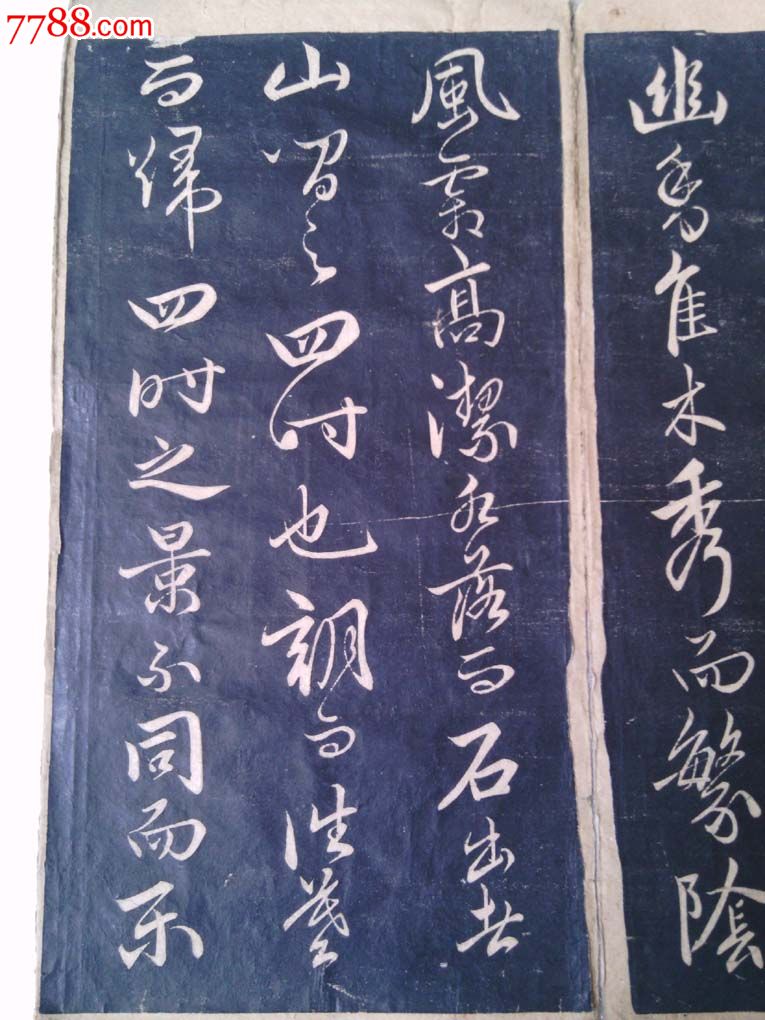 7788.com
幽香佳木秀而繁陰
風霜高潔水落而石出者
山間之四時也朝而往暮
而歸四時之景不同而樂